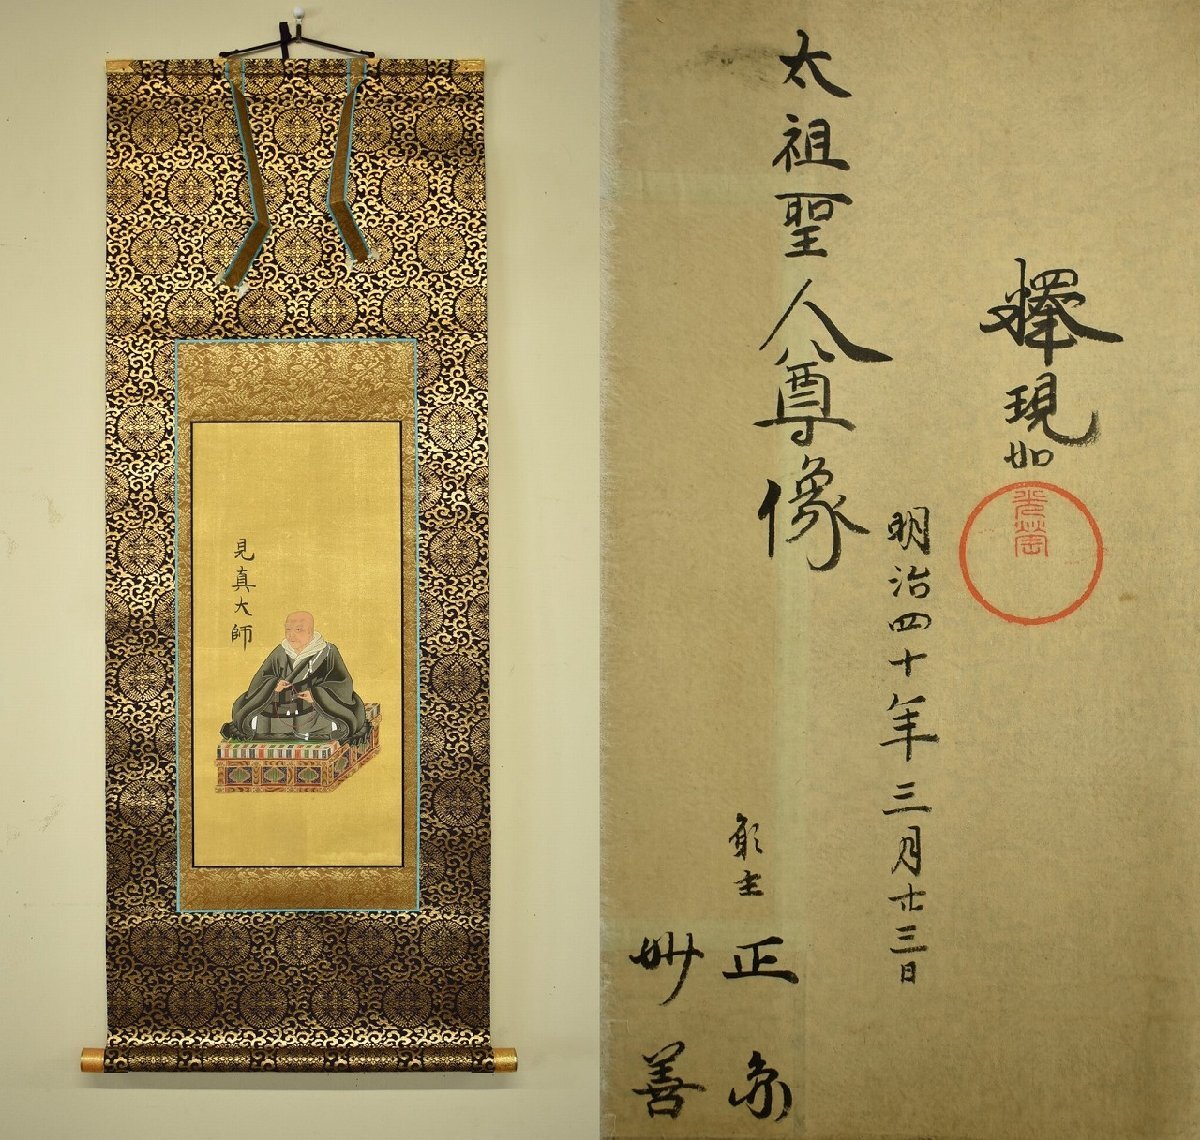 見真大師
釋現如
明治四十年三月廿三日
太祖聖人尊像
願主
正
妙善